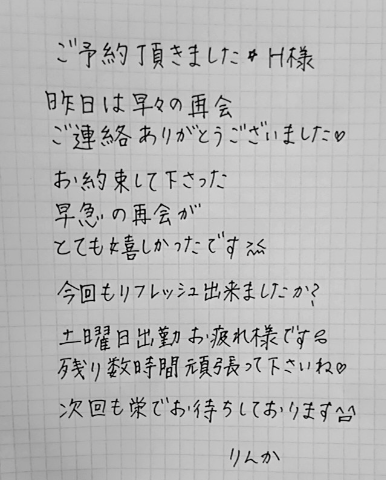 ご予約頂きました☆H様
昨日は早々の再会
ご連絡ありがとうございました♡
お約束して下さった
早急の再会が
とても嬉しかったです
今回もリフレッシュ出来ましたか?
土曜日出勤お疲れ様です
残り数時間頑張って下さいね♡
次回も栄でお待ちしております^^
りんか